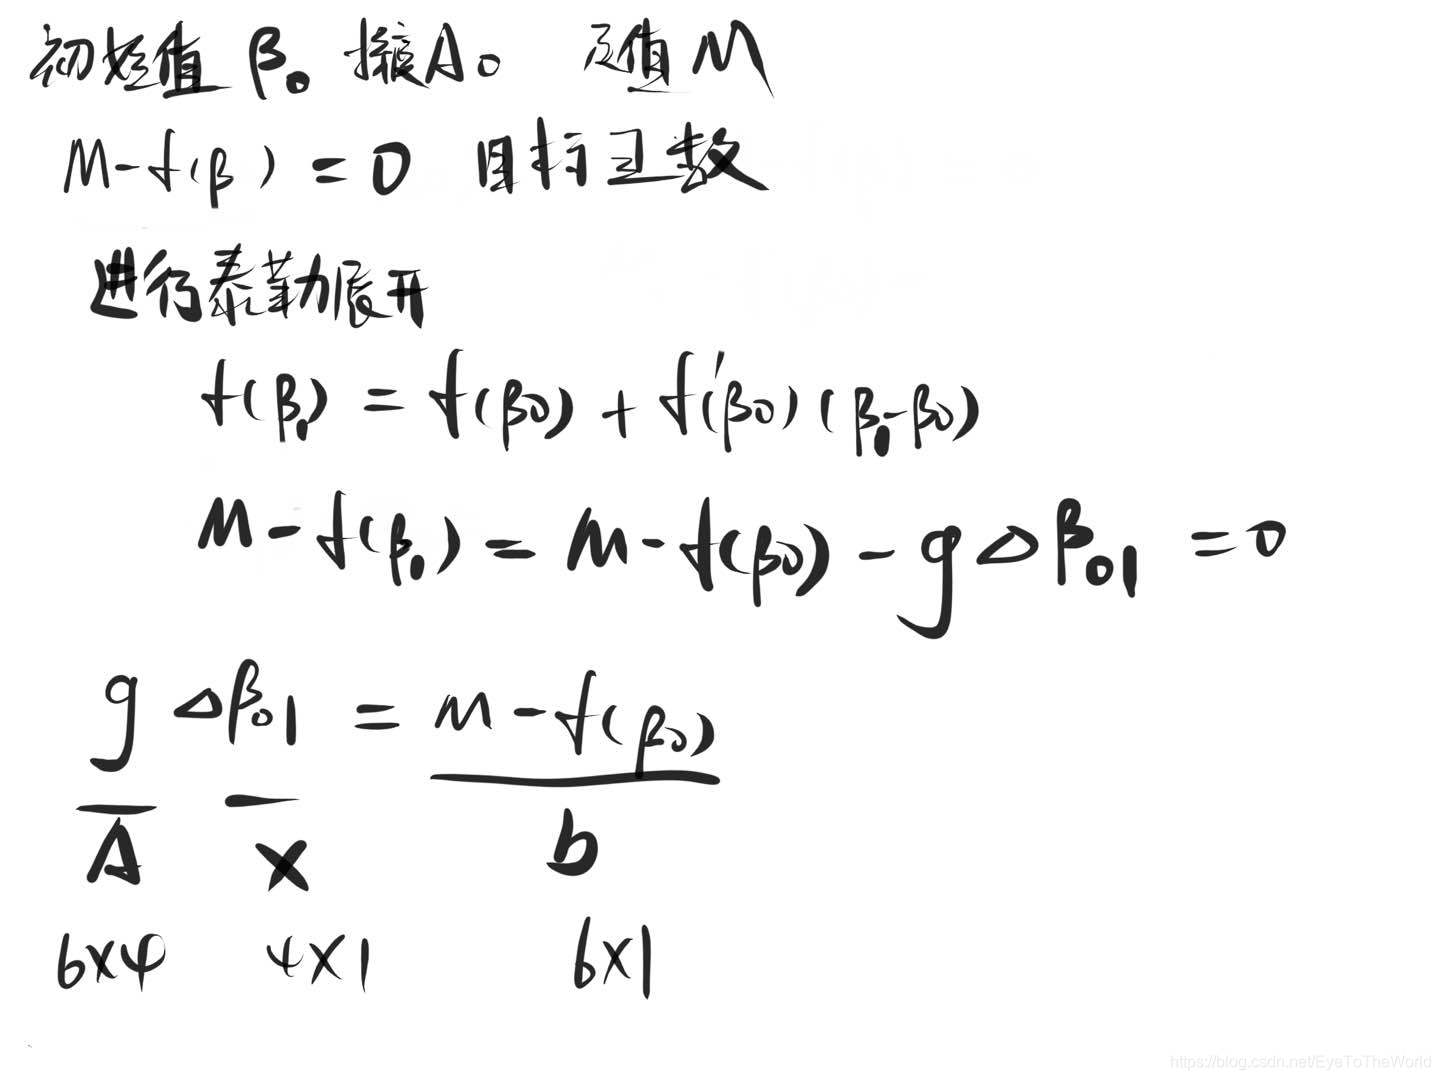 初始值 β₀ 接A₀ 及值 M
M-f(β) = 0 目标函数
进行泰勒展开
f(β₁) = f(β0) + f'(β0)(β₁-β0)
M-f(β₁) = M-f(β0) - g△β₀₁ = 0
g △β₀₁ = M-f(β0)
A x b
6x4 4x1 6x1
https://blog.csdn.net/EyeToTheWorld